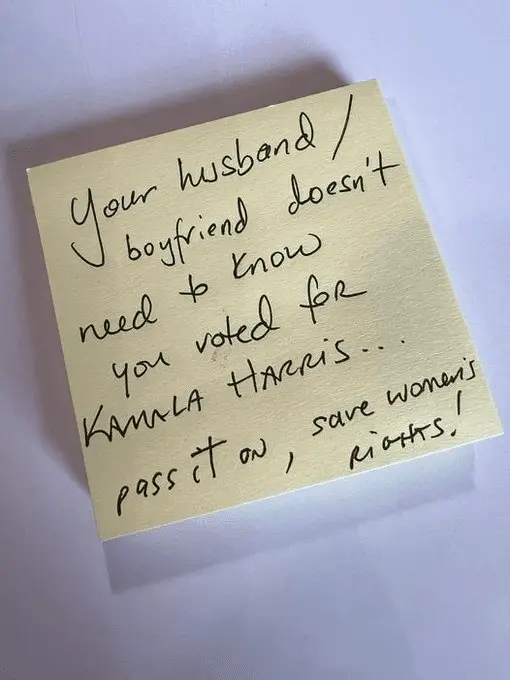 Your husband/
boyfriend doesn't
need to know
you voted for
KAMALA HARRIS...
pass it on, save women's
RIGHTS!